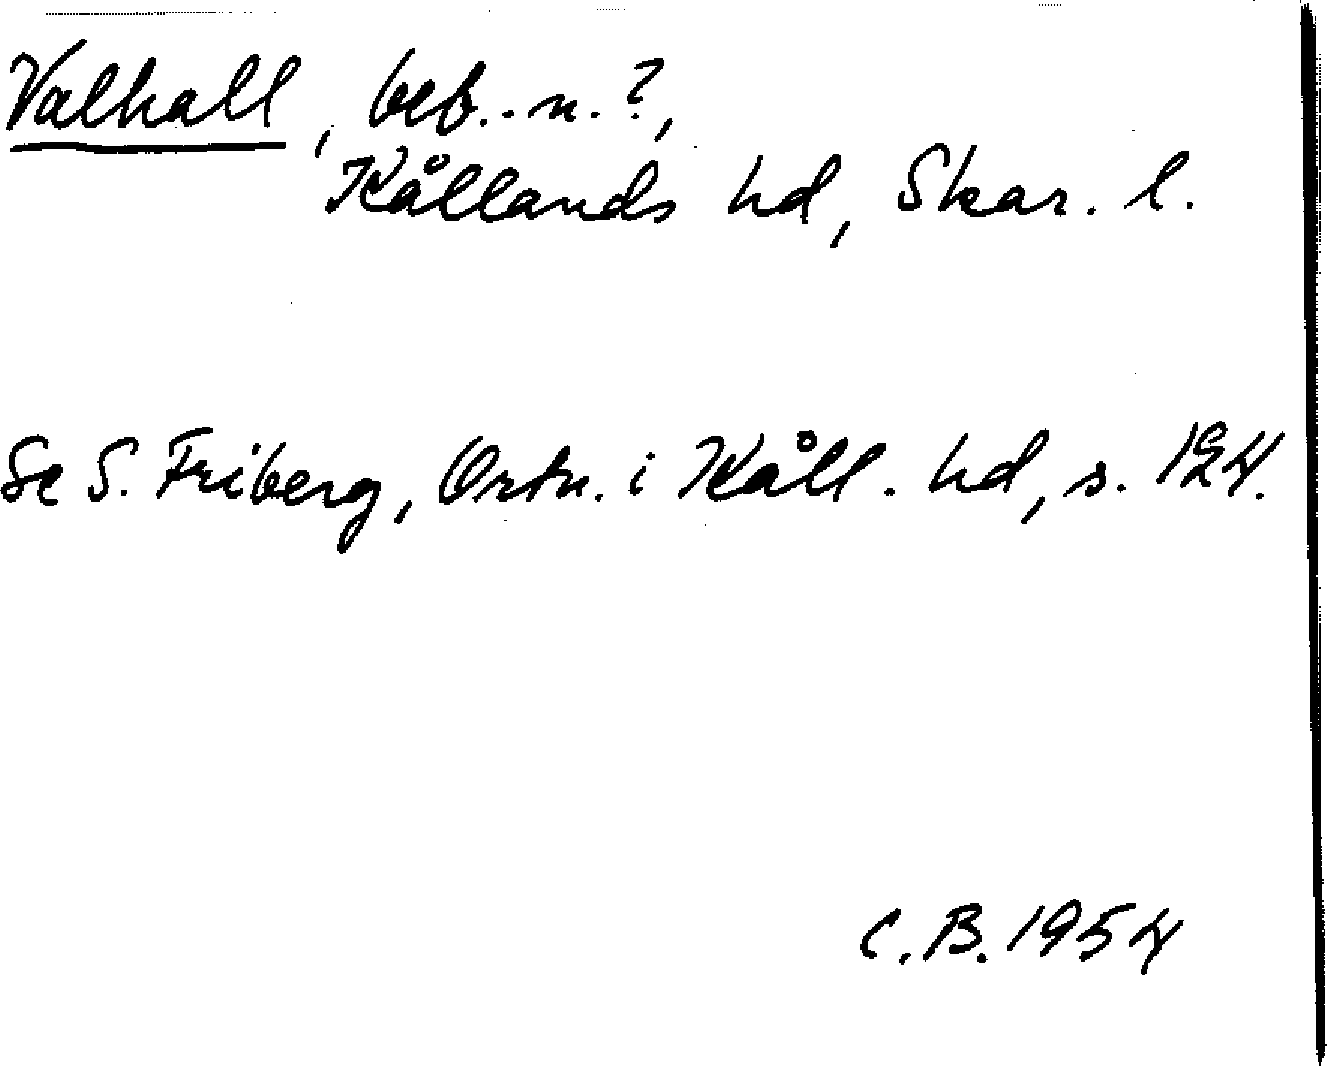 Valhall, beb..n.?,
Kållands hd, Skar. l.
Se S. Friberg, Ortn. i Kåll. hd, s. 124.
C. B. 1954